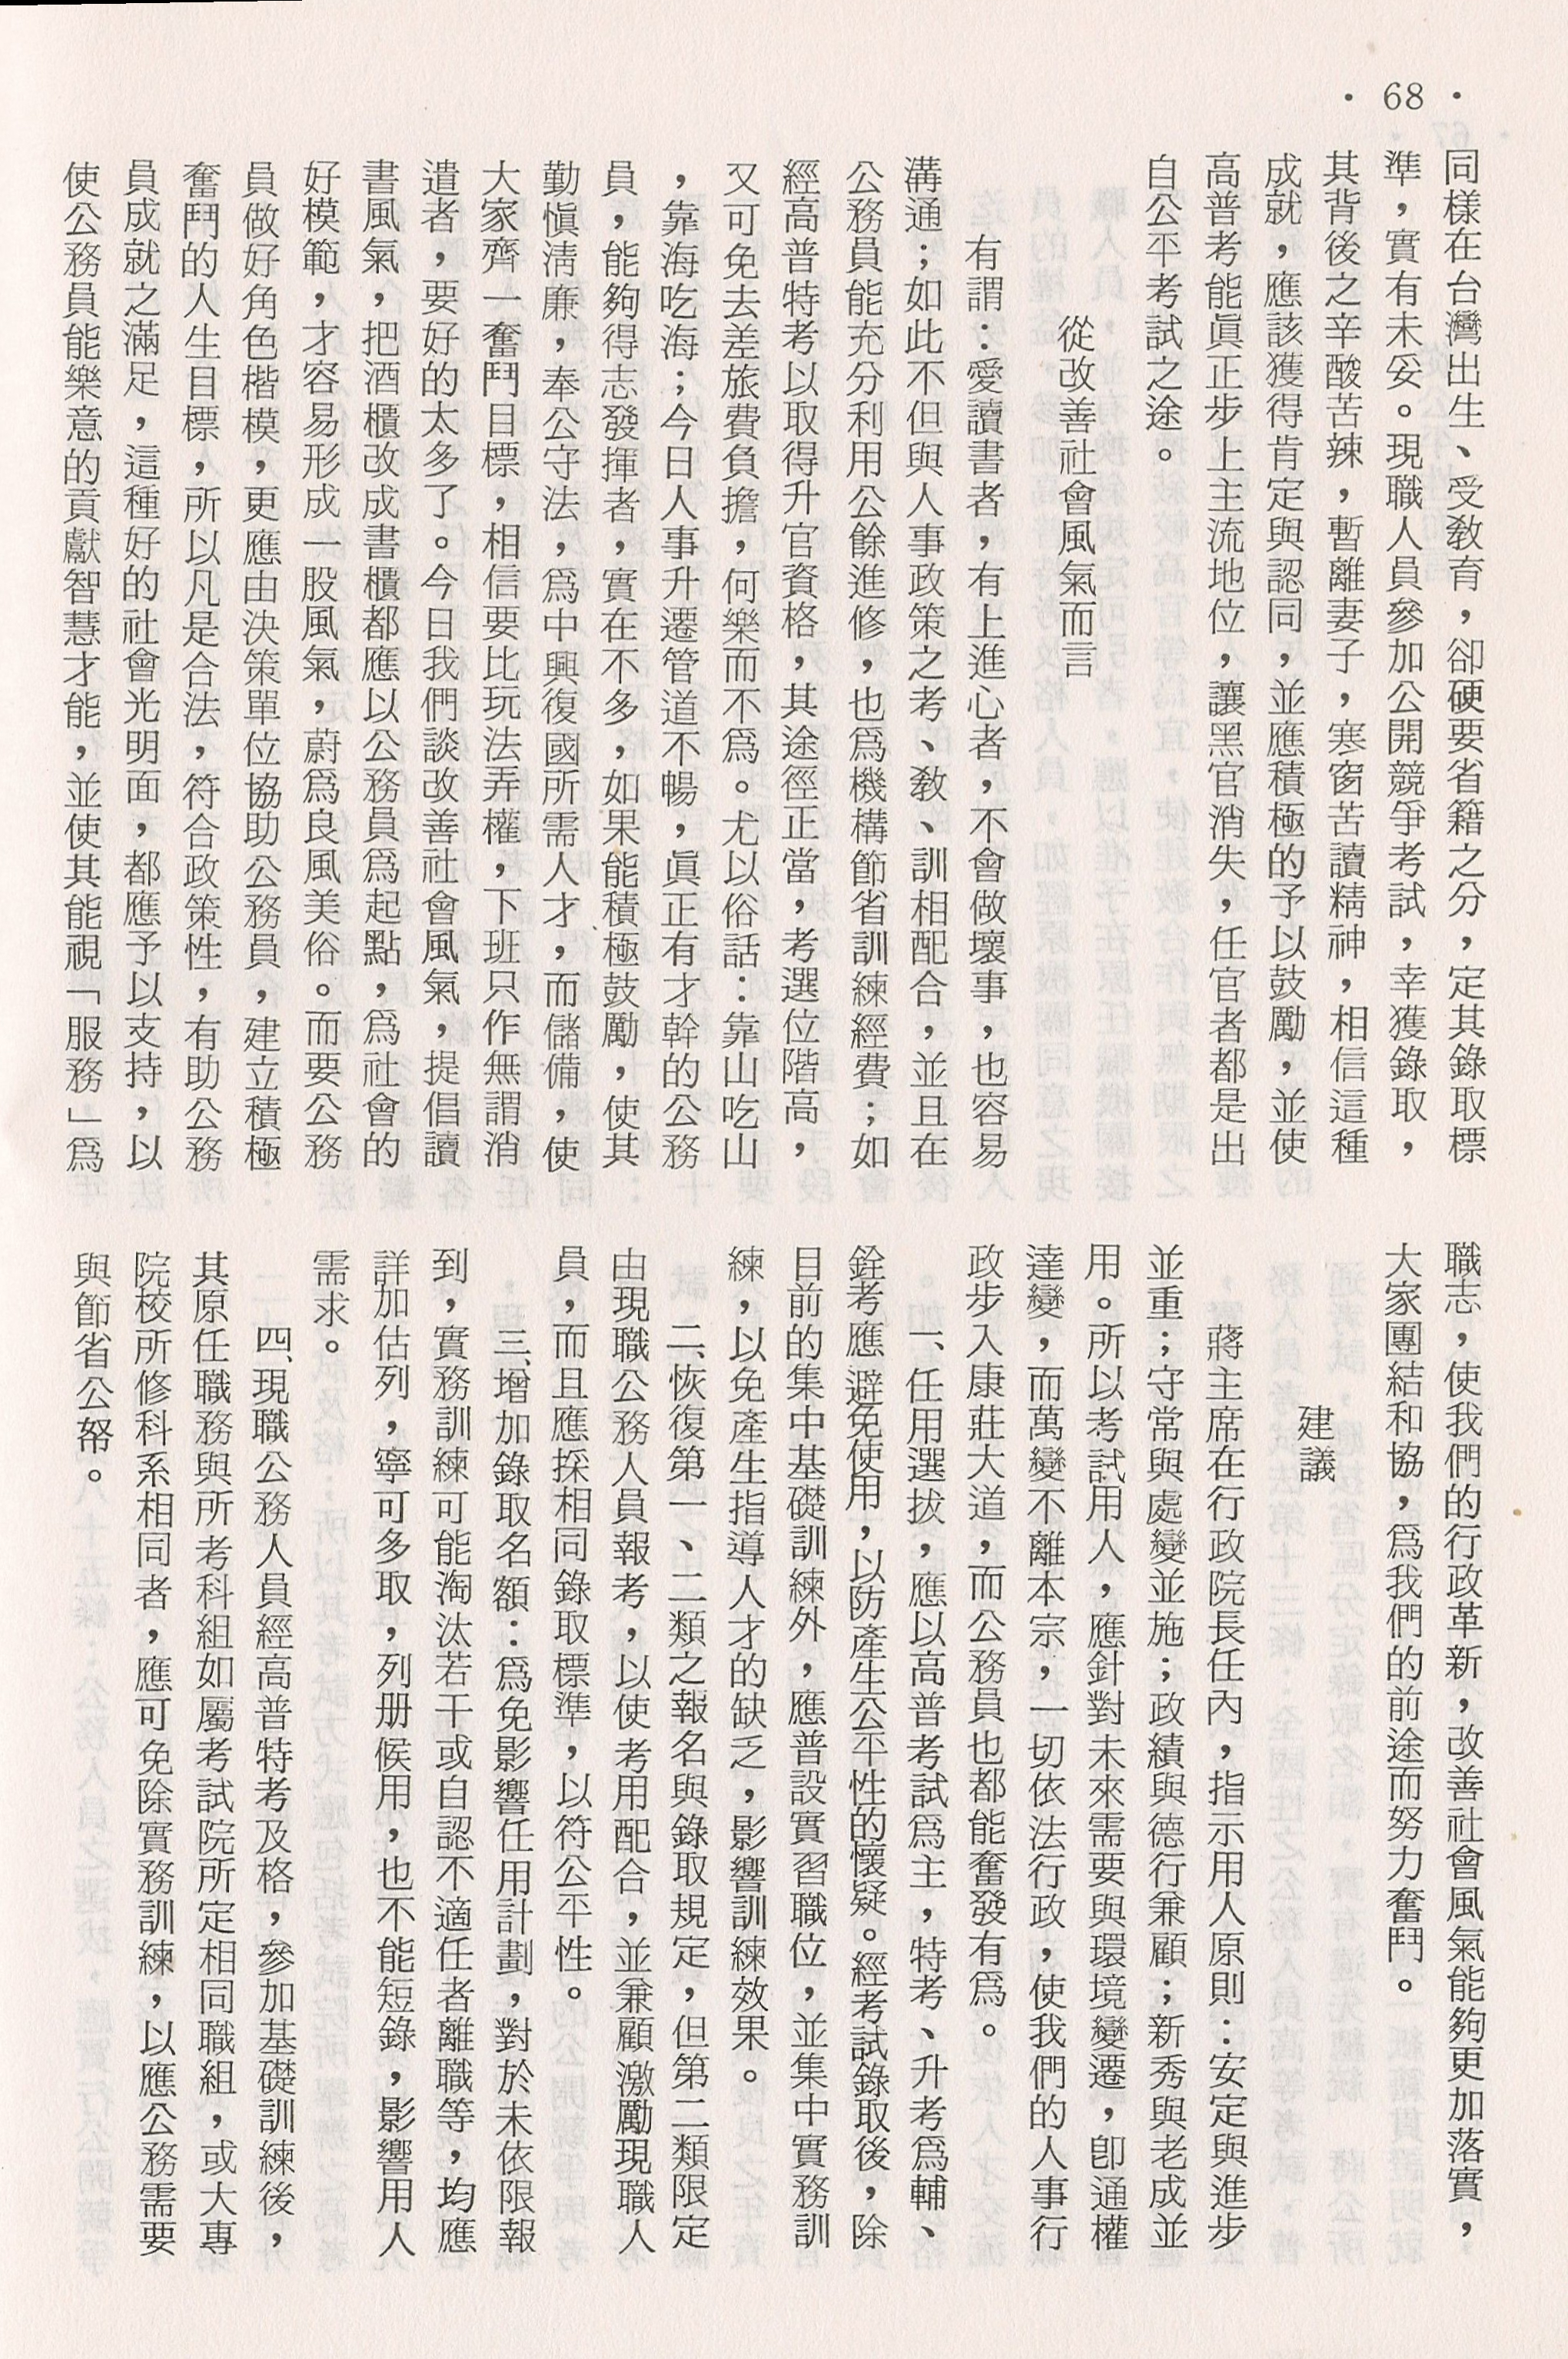 · 68 ·
同樣在台灣出生、受教育，卻硬要省籍之分，定其錄取標
準，實有未妥。現職人員參加公開競爭考試，幸獲錄取，
其背後之辛酸苦辣，暫離妻子，寒窗苦讀精神，相信這種
成就，應該獲得肯定與認同，並應積極的予以鼓勵，並使
高普考能眞正步上主流地位，讓黑官消失，任官者都是出
自公平考試之途。
從改善社會風氣而言
有謂：愛讀書者，有上進心者，不會做壞事，也容易
溝通；如此不但與人事政策之考、教、訓相配合，並且在
公務員能充分利用公餘進修，也爲機構節省訓練經費；如
經高普特考以取得升官資格，其途徑正當，考選位階高，
又可免去差旅費負擔，何樂而不爲。尤以俗話：靠山吃山
，靠海吃海；今日人事升遷管道不暢，眞正有才幹的公務
員，能夠得志發揮者，實在不多，如果能積極鼓勵，使其
勤愼淸廉，奉公守法，爲中興復國所需人才，而儲備，使
大家齊一奮鬥目標，相信要比玩法弄權，下班只作無謂消
遣者，要好的太多了。今日我們談改善社會風氣，提倡讀
書風氣，把酒櫃改成書櫃都應以公務員爲起點，爲社會的
好模範，才容易形成一股風氣，蔚爲良風美俗。而要公務
員做好角色楷模，更應由決策單位協助公務員，建立積極
奮鬥的人生目標，所以凡是合法，符合政策性，有助公務
員成就之滿足，這種好的社會光明面，都應予以支持，以
使公務員能樂意的貢獻智慧才能，並使其能視「服務」爲
職志，使我們的行政革新，改善社會風氣能夠更加落實，
大家團結和協，爲我們的前途而努力奮鬥。
建議
蔣主席在行政院長任內，指示用人原則：安定與進步
並重；守常與處變並施；政績與德行兼顧；新秀與老成並
用。所以考試用人，應針對未來需要與環境變遷，卽通權
達變，而萬變不離本宗，一切依法行政，使我們的人事行
政步入康莊大道，而公務員也都能奮發有爲。
一、任用選拔，應以高普考試爲主，特考、升考爲輔、
銓考應避免使用，以防產生公平性的懷疑。經考試錄取後，除
目前的集中基礎訓練外，應普設實習職位，並集中實務訓
練，以免產生指導人才的缺乏，影響訓練效果。
二、恢復第一、二類之報名與錄取規定，但第二類限定
由現職公務人員報考，以使考用配合，並兼顧激勵現職人
員，而且應採相同錄取標準，以符公平性。
三、增加錄取名額：爲免影響任用計劃，對於未依限報
到，實務訓練可能淘汰若干或自認不適任者離職等，均應
詳加估列，寧可多取，列册候用，也不能短錄，影響用人
需求。
四、現職公務人員經高普特考及格，參加基礎訓練後，
其原任職務與所考科組如屬考試院所定相同職組，或大專
院校所修科系相同者，應可免除實務訓練，以應公務需要
與節省公帑。